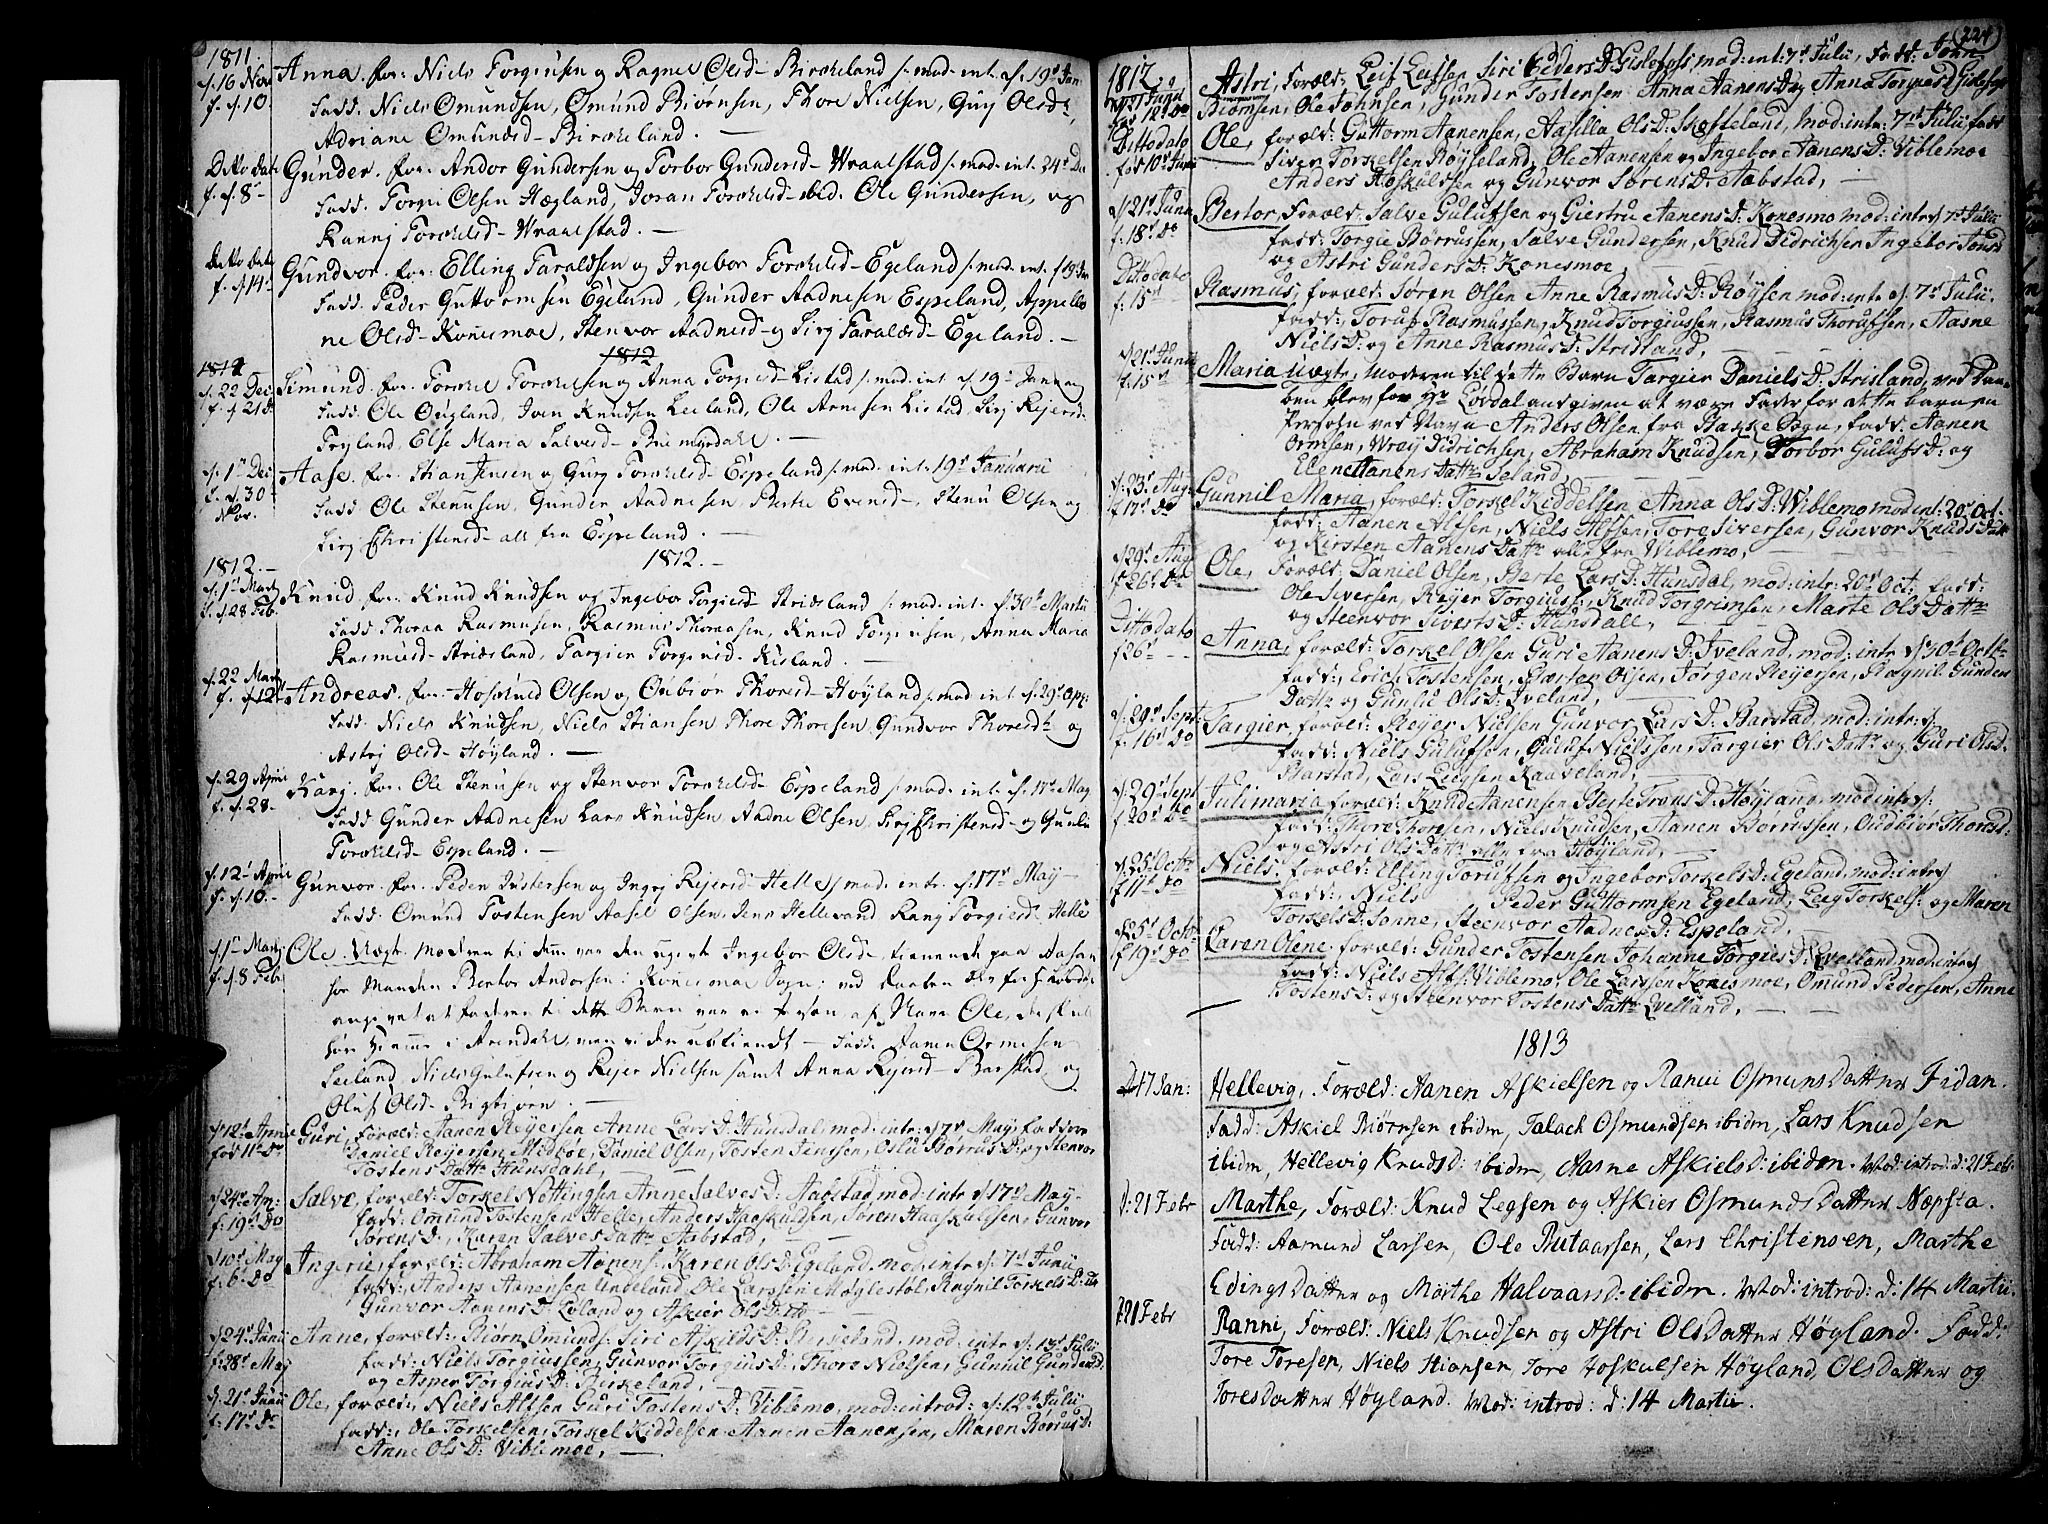 1811.
d. 16 Nov Anna. for: Niels Torgiusen og Ragnel Olsd- Birkeland mod. int. d. 19 Jan
f. d. 10. Fadd. Niels Omundsen, Omund Biörnsen, Thore Nielsen, Gurj Olsd
Adriane Omundsd- Birkeland.
Ditto Dat Gunder. for. Andor Gundersen og Torbor Gundersd- Vraalstad mod. int. 24 De
f. d. 8 Fadd. Torgie Olsen Hægland, Joran Torkelsd- ibid. Ole Gundersen, og
Rannj Torkelsd- Vraalstad.
Ditto Dat Gundvor. for. Elling Taraldsen og Ingebor Torkelsd- Egeland mod. int. d. 19 Jan
f. d. 14 Fadd. Peder Guttormsen Egeland, Gunder Aadnesen Espeland, Appello
ne Olsd- Konesmoe, Stenvor Aadnesd- og Sirj Taraldsd- Egeland.
1812
d. 22 Dec Simund. for. Torkel Torkelsen og Anna Torgiesd- Listad mod. int. d. 19 Januarij
f. d. 21 Fadd. Ole Öigland, Iven Knudsen Leeland, Ole Arnesen Listad, Sirj Rejersd
Tryland, Else Maria Salvesd-
d. 1 Dec Aase. for. Stian Jensen og Gurj Torkelsd- Espeland mod. int. 19 Januarii
f. d. 30 Nov. Fadd. Ole Stenusen, Gunder Aadnesen, Berte Evensd-, Stenu Olsen og
Sirj Christensd- all fra Espeland.
1812. 1812.
d. 1 Mart Knud for. Knud Knudsen og Ingebor Torgiesd- Stridsland mod. int. d. 30 Martii
f. d. 28 Feb. Fadd Thoraa Rasmusen, Rasmus Thoraasen, Knud Torgiusen, Anna Maria
Rasmusd- Stridsland, Targier Torgeusd- Risland.
d. 22 Mart Andreas. for. Hoskuld Olsen og Oubiör Thoresd- Höyland mod. int. d. 29 Apr.
f. d. 12 Fadd. Niels Knudsen, Niels Stiansen Thore Thoresen, Gundvor Thoresd og
Astrj Olsd- Höyland.
d. 29 April Karj. for. Ole Stenusen og Stenvor Torkelsd- Espeland mod. int. d. 17 Maj
f. d. 28 Fadd Gunder Aadnesen Lars Knudsen Aadne Olsen, Sirj Christensd- og Gunlu
Torkelsd- Espeland.
d. 12 April Gunvor. for. Peder Justersen og Ingrj Rejersd- Helle mod. intr. d. 17 Maj
f. d. 10. Fadd. Omund Tostensen Aasel Olsen, Jens Hellevand Ranj Torgiersd Helle
d. 1 Martj Ole. Uægte. Moderen til den var den ugivte Ingebor Olsd- tienende paa Aasan
f. d. 8 Feb hos Manden Bertor Andorsen i Konesmoe Sogn; ved Daaben
angivet at Faderen til dette Barn var en Person af Navn Ole, der skal
hore hiemme i Arendahl, men videre ubekiendt - Fadd. Aanen Ormsen
Leeland Niels Gulufsen og Rejer Nielsen samt Anna Rejersd- Barstad og
Oluf Olsd-
d. 12 April Guri, Foræld: Aanen Reyersen Anne Lars D: Hunsdal, mod: intr: 17 May, fadd
fød 11 Do Daniel Reyersen Midböe, Daniel Olsen, Tosten Jensen, Oslu Börrus D: og Stenvor
Tostens Datt: Hunsdahl,
d. 24 Ap: Salve, foræld: Torskel Nottingsen Anne Salves D: Aabstad, mod: intr d. 17 May.
f: 19 Do fadd: Omund Tostensen Helle, Anders Haaskuldsen, Søren Haaskuldsen, Gunvor
Sørens D: Karen Salves Datt Aabstad,
d. 10 May Ingerie, foræld: Abraham Aanens: Karen Ols D: Egeland. mod: intr d. 7 Junii
f: 6 Do fadd: Anders Aanensen Undeland Ole Larssen Möglestöl, Ragnil Torskels D:
Gunvor Aanens D: Loland og Askier Ols D:
d. 24 Junii Anne, foræld: Biörn Omunds: Siri Askilds D: Birkeland. mod: intr d. 13 Julii
f: 28 May fadd: Niels Torgiussen, Gunvor Torgius D: Thore Nielsen, Gunnil Gunders D.
og Asper Torgius D: Birkeland,
d. 21 Junii Ole, foræld: Niels Alfsen Guri Tostens D: Viblemo, mod: introd: d. 12 Julii
f: 17 Do fadd: Ole Torkelsen, Torskel Kiddelsen Aanen Aanensen, Maren Börrus D:
Anne Ols D: Viblemoe,
224
1812 Astri, Foræld: Leif Leifsen Siri Peders D: Gislefoss, mod: int: 7 Julii, Fadd: John
Biörnsen, Ole Johnsen, Gunder Tostensen Anna Aanens D og Anna Torgies D Gislefoss
Ditto dato Ole, foræld: Guttorm Aanensen, Aasilla Ols D: Skofteland, mod: intr: 7 Julii, fadd
fød 10 Junii Siver Torskelsen Röyseland, Ole Aanensen og Ingebor Aanens D: Viblemoe
Anders Hoskuldsen og Gunvor Sørens D: Aabstad,
d. 21 Junii Bertor, Foræld: Salve Gulufsen og Giertru Aanens D: Konesmo mod: intr d 7 Julii
f: 18 Do fadd: Torgie Börrussen, Salve Gundersen, Knud Didrichsen Ingebor Jons D
og Astri Gunders D: Konesmoe,
Ditto dato Rasmus, foræld: Søren Olsen Anne Rasmus D: Röysen mod: intr d. 7 Julii.
f: 15 fadd: Toruf Rasmussen, Knud Torgiussen, Rasmus Thorufsen, Aasne
Niels D: og Anne Rasmus D: Stridland,
d. 21 Junii Maria uægte, moderen til dette Barn Targier Daniels D: Strisland, ved Daa-
f. 15 ben blev for Hr Lovdal angiven at være Fader for dette barn en
Persohn ved Navn Anders Olsen fra Bakke Sogn, fadd: Aanen
Ormsen, Wraij Didrichsen, Abraham Knudsen, Torbor Gulufs D: og
Elene Aanens Datt: Leland,
d. 23 Aug Gunnil Maria, foræld: Torskel Kiddelsen Anna Ols D: Wiblemo mod int: 20 Oct.
f 17 Do fadd: Aanen Alfsen, Niels Alfsen, Tore Siversen, Gunvor Knuds Datt
og Kirsten Aanens Datt alle fra Wiblemo,
d 29 Aug Ole, Foræld: Daniel Olsen, Berte Lars D: Hunsdal, mod: intr: 20 Oct: fadd:
f 26 Do Ole Siversen, Reyer Torgius:, Knud Torgrimsen, Marte Ols Datt
og Steenvor Siverts D: Hunsdall,
Ditto dato Anna, foræld: Torskel Olsen Guri Aanens D: Iveland, mod: intr d 30 Octb
f 26 fadd: Erich Tostensen, Giærten Olsen, Jørgen Reyersen, Ragnil Gunders
Datt og Gunlu Ols D: Iveland,
d. 29 Sept: Targier, foræld: Reyer Nielsen Gunvor Lars D: Barstad, mod: intr: d.
f. 16 Do fadd: Niels Gulufsen, Guluf Nielssen, Targier Ols Datt og Guri Ols D.
Barstad, Lars Leegsen Kaaveland,
d. 29 Sept Julimaria foræld: Knud Aanensen Berte Trons D: Høyland, mod intr d.
f. 20 Do fadd: Thore Thoresen, Niels Knudsen, Aanen Börrussen, Oudbior Thores D:
og Astri Ols Datt alle fra Høyland,
d. 25 Octb Niels, foræld: Elling Torufsen og Ingebor Torskels D: Egeland, mod: intr d
f 11 Do fadd: Niels Peder Guttormsen Egeland, Leeg Torskels: og Maren
Torskels D: Sonne, Steenvor Aadnes D: Espeland,
d 25 Octb Karen Olene, foræld: Gunder Tostensen Johanne Torgies D: Evelland, mod: intr d
f 19 Do fadd: Niels Alfs: Viblemo, Ole Larssen Konesmoe, Omund Pedersen, Anne
Tostens D: og Steenvor Tostens Datt Evelland,
1813
D 17 Jan: Hellevig, Foræld: Aanen Askielsen og Ranni Osmunds Datter Fidan.
Fadd: Askiel Biørnsen ibidm, Salach Osmundsen ibidm, Lars Knudsen
ibidm, Hellevig Knudsd: ibidm, Aasne Askielsd: ibidm. Mod: introd: d: 21 Feb:
d: 21 Febr Marthe, Foræld: Knud Legsen og Askier Osmunds Datter Nøpsta.
Fadd: Aamund Larsen, Ole Rutaarsen, Lars Christensen, Marthe
Edings Datter og Marthe Halvaarsd: ibidm. Mod: introd: d: 14 Martii.
d 21 Febr Ranni, Foræld: Niels Knudsen og Astri Ols Datter Høyland. Fadd:
Tore Toresen, Niels Stiansen, Tore Hoskulsen Høyland, Olsdatter og
Toresdatter Høyland. Mod: introd: d: 14 Martii.